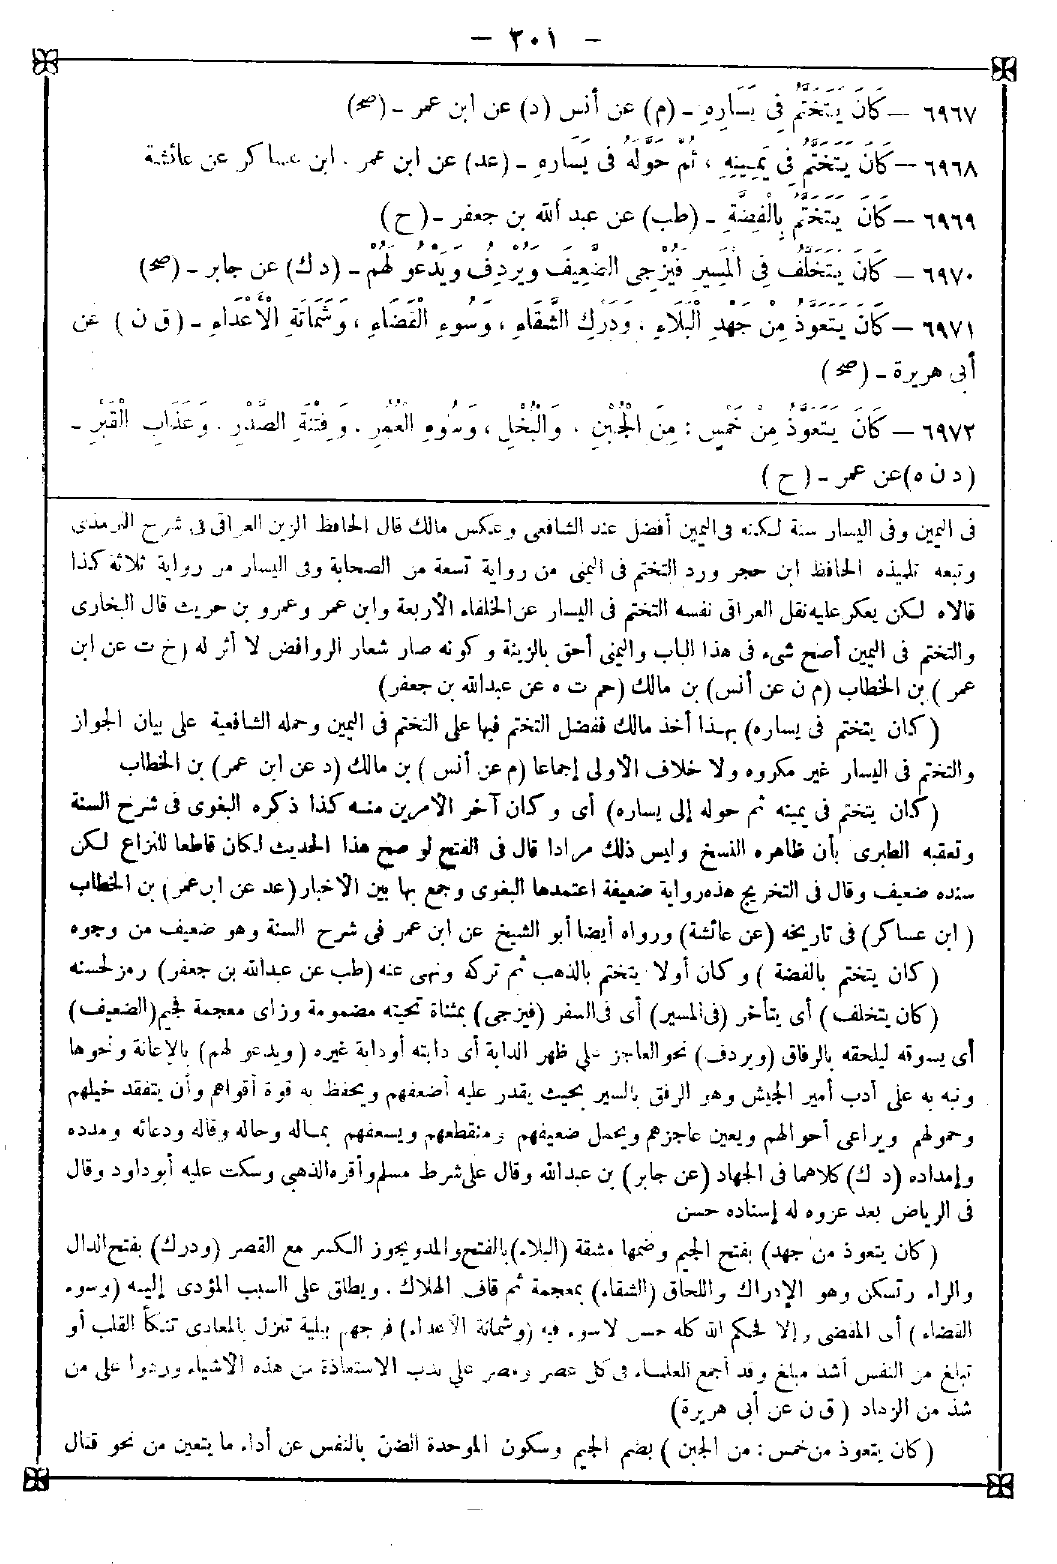 – ٢٠١ –
٦٩٦٧ – كَانَ يَتَخَتَّمُ فِى يَسَارِهِ - (م) عن أنس (د) عن ابن عمر - (صح)
٦٩٦٨ – كَانَ يَتَخَتَّمُ فِى يَمِينِهِ ، ثُمَّ حَوَّلَهُ فى يَسَارِهِ - (عد) عن ابن عمر . ابن عساكر عن عائشة
٦٩٦٩ – كَانَ يَتَخَتَّمُ بِالْفِضَّةِ - (طب) عن عبد الله بن جعفر - (ح)
٦٩٧٠ – كَانَ يَتَخَلَّفُ فِى الْمَسِيرِ فَيُزْجِى الضَّعِيفَ وَيُرْدِفُ وَيَدْعُو لَهُمْ - (د ك) عن جابر - (صح)
٦٩٧١ – كَانَ يَتَعَوَّذُ مِنْ جَهْدِ الْبَلَاءِ . وَدَرَكِ الشَّقَاءِ ، وَسُوءِ الْقَضَاءِ ، وَشَمَاتَةِ الْأَعْدَاءِ - (ق ن) عن
أبى هريرة - (صح)
٦٩٧٢ – كَانَ يَتَعَوَّذُ مِنْ خَمْسٍ : مِنَ الْجُبْنِ . وَالْبُخْلِ ، وَسُوءِ الْعُمُرِ . وَفِتْنَةِ الصَّدْرِ . وَعَذَابِ الْقَبْرِ -
(د ن ه) عن عمر - (ح)
فى اليمين وفى اليسار سنة لكنه فى اليمين أفضل عند الشافعى وعكس مالك قال الحافظ الزين العراقى فى شرح الترمذى
وتبعه تلميذه الحافظ ابن حجر ورد التختم فى اليمنى من رواية تسعة من الصحابة وفى اليسار من رواية ثلاثة كذا
قالاه لكن يعكر عليه نقل العراقى نفسه التختم فى اليسار عن الخلفاء الأربعة وابن عمر وعمرو بن حريث قال البخارى
والتختم فى اليمين أصح شىء فى هذا الباب واليمنى أحق بالزينة وكونه صار شعار الروافض لا أثر له (خ ت عن ابن
عمر) بن الخطاب (م ن عن أنس) بن مالك (حم ت ه عن عبدالله بن جعفر)
(كان يتختم فى يساره) بهذا أخذ مالك ففضل التختم فيها على التختم فى اليمين وحمله الشافعية على بيان الجواز
والتختم فى اليسار غير مكروه ولا خلاف الأولى إجماعا (م عن أنس) بن مالك (د عن ابن عمر) بن الخطاب
(كان يتختم فى يمينه ثم حوله إلى يساره) أى وكان آخر الأمرين منه كذا ذكره البغوى فى شرح السنة
وتعقبه الطبرى بأن ظاهره النسخ وليس ذلك مرادا قال فى الفتح لو صح هذا الحديث لكان قاطعا للنزاع لكن
سنده ضعيف وقال فى التخريج هذه رواية ضعيفة اعتمدها البغوى وجمع بها بين الاخبار (عد عن ابن عمر) بن الخطاب
(ابن عساكر) فى تاريخه (عن عائشة) ورواه أيضا أبو الشيخ عن ابن عمر فى شرح السنة وهو ضعيف من وجوه
(كان يتختم بالفضة) وكان أولا يتختم بالذهب ثم تركه ونهى عنه (طب عن عبدالله بن جعفر) رمز لحسنه
(كان يتخلف) أى يتأخر (فى المسير) أى فى السفر (فيزجى) بمثناة تحتيه مضمومة وزاى معجمة فجيم (الضعيف)
أى يسوقه ليلحقه بالرفاق (ويردف) نحو العاجز على ظهر الدابة أى دابته أو دابة غيره (ويدعو لهم) بالإعانة ونحوها
ونبه به على أدب أمير الجيش وهو الرفق بالسير بحيث يقدر عليه أضعفهم ويحفظ به قوة أقواهم وأن يتفقد خيلهم
وحمولهم ويراعى أحوالهم ويعين عاجزهم ويحمل ضعيفهم ومنقطعهم ويسعفهم بماله وحاله وقاله ودعائه ومدده
وإمداده (د ك) كلاهما فى الجهاد (عن جابر) بن عبدالله وقال على شرط مسلم وأقره الذهبى وسكت عليه أبو داود وقال
فى الرياض بعد عزوه له إسناده حسن
(كان يتعوذ من جهد) بفتح الجيم وضمها مشقة (البلاء) بالفتح والمد ويجوز الكسر مع القصر (ودرك) بفتح الدال
والراء وتسكن وهو الإدراك واللحاق (الشقاء) بمعجمة ثم قاف الهلاك . ويطلق على السبب المؤدى إليه (وسوء
القضاء) أى المقضى وإلا فحكم الله كله حسن لا سوء فيه (وشماتة الأعداء) فرحهم ببلية تنزل بالمعادى تنكأ القلب أو
تبلغ من النفس أشد مبلغ وقد أجمع العلماء فى كل عصر ومصر على ندب الاستعاذة من هذه الأشياء وردوا على من
شذ من الزهاد (ق ن عن أبى هريرة)
(كان يتعوذ من خمس : من الجبن) بضم الجيم وسكون الموحدة الضن بالنفس عن أداء ما يتعين من نحو قتال